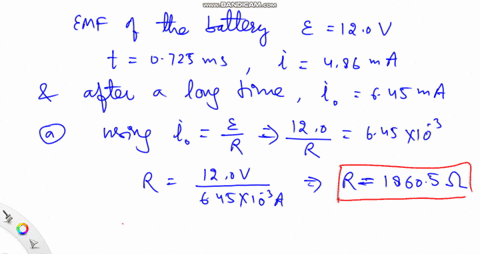 WWW.BANDICAM.COM
EMF of the battery ε = 12.0 V
t = 0.725 ms, i = 4.86 mA
& after a long time, i₀ = 6.45 mA
ⓐ using i₀ = ε/R ⇒ 12.0/R = 6.45 × 10⁻³
R = 12.0V / 6.45×10⁻³A ⇒ R = 1860.5 Ω